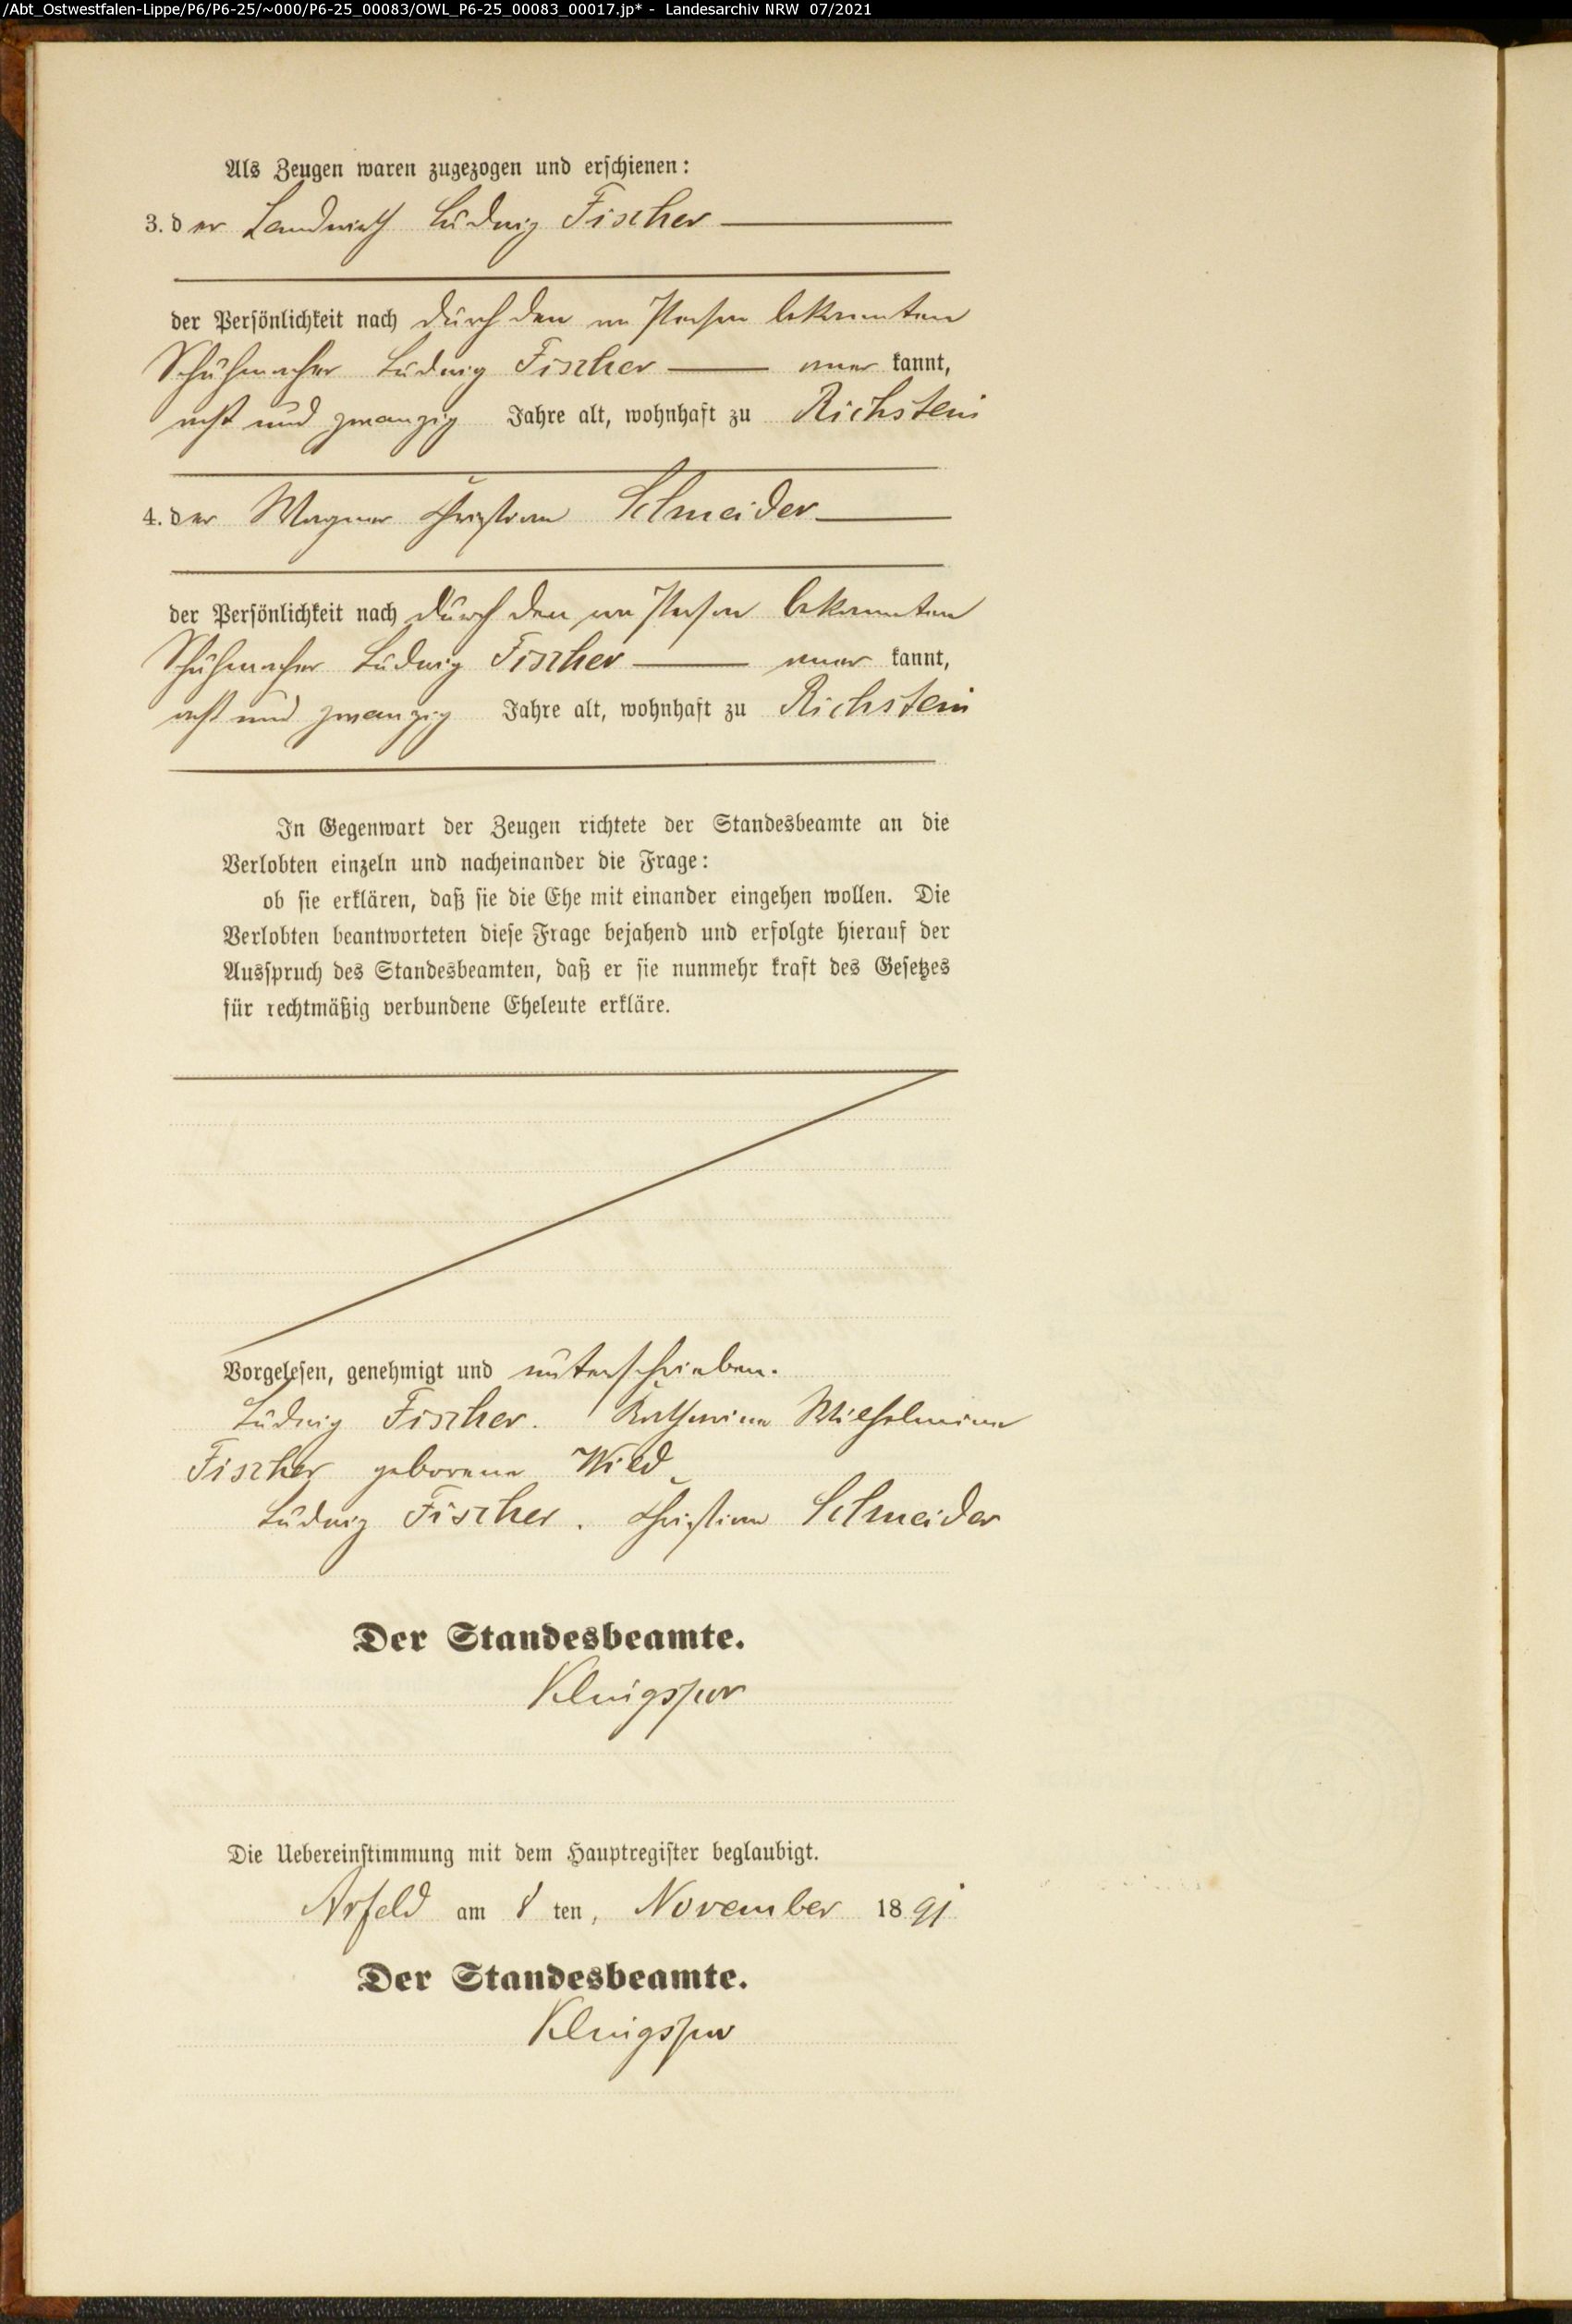 /Abt_Ostwestfalen-Lippe/P6/P6-25/~000/P6-25_00083/OWL_P6-25_00083_00017.jp* - Landesarchiv NRW 07/2021
Als Zeugen waren zugezogen und erschienen:
3. der Landwirth Ludwig Fischer
der Persönlichkeit nach durch den von Person bekannten
Schuhmacher Ludwig Fischer anerkannt,
acht und zwanzig Jahre alt, wohnhaft zu Richstein
4. der Wagner Christian Schneider
der Persönlichkeit nach durch den von Person bekannten
Schuhmacher Ludwig Fischer anerkannt,
acht und zwanzig Jahre alt, wohnhaft zu Richstein
In Gegenwart der Zeugen richtete der Standesbeamte an die
Verlobten einzeln und nacheinander die Frage:
ob sie erklären, daß sie die Ehe mit einander eingehen wollen. Die
Verlobten beantworteten diese Frage bejahend und erfolgte hierauf der
Ausspruch des Standesbeamten, daß er sie nunmehr kraft des Gesetzes
für rechtmäßig verbundene Eheleute erkläre.
Vorgelesen, genehmigt und unterschrieben.
Ludwig Fischer. Katharina Wilhelmine
Fischer geborene Wied
Ludwig Fischer. Christian Schneider
Der Standesbeamte.
Klingspor
Die Uebereinstimmung mit dem Hauptregister beglaubigt.
Arfeld am 8 ten, November 1891
Der Standesbeamte.
Klingspor